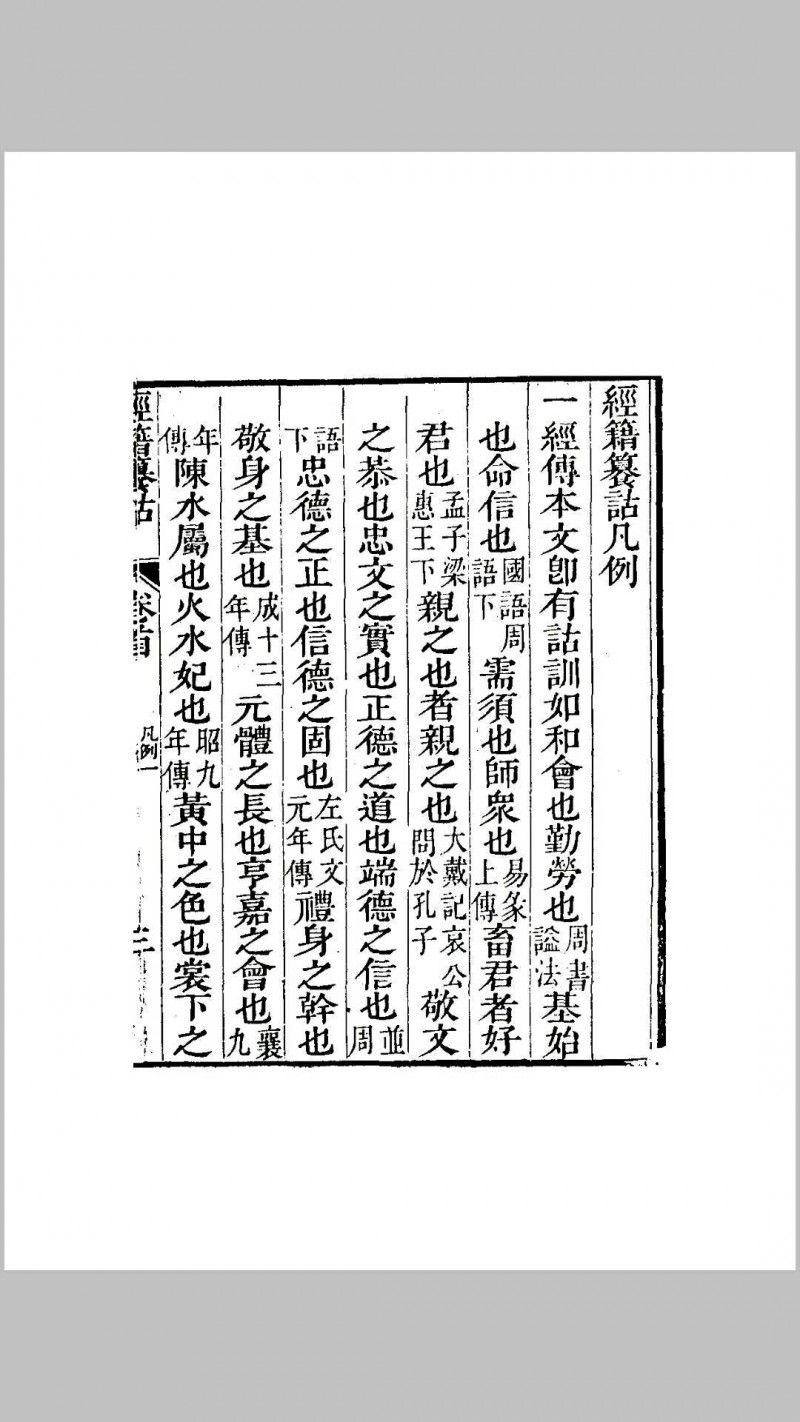 經籍籑詁凡例
一經傳本文卽有詁訓如和會也勤勞也周書謚法基始
也命信也國語周語下需須也師衆也易彖上傳畜君者好
君也孟子梁惠王下親之也者親之也大戴記哀公問於孔子敬文
之恭也忠文之實也正德之道也端德之信也並周
語下忠德之正也信德之固也左氏文元年傳禮身之幹也
敬身之基也成十三年傳元體之長也亨嘉之會也襄九
年傳陳水屬也火水妃也昭九年傳黃中之色也裳下之
經籍籑詁 卷首 凡例一